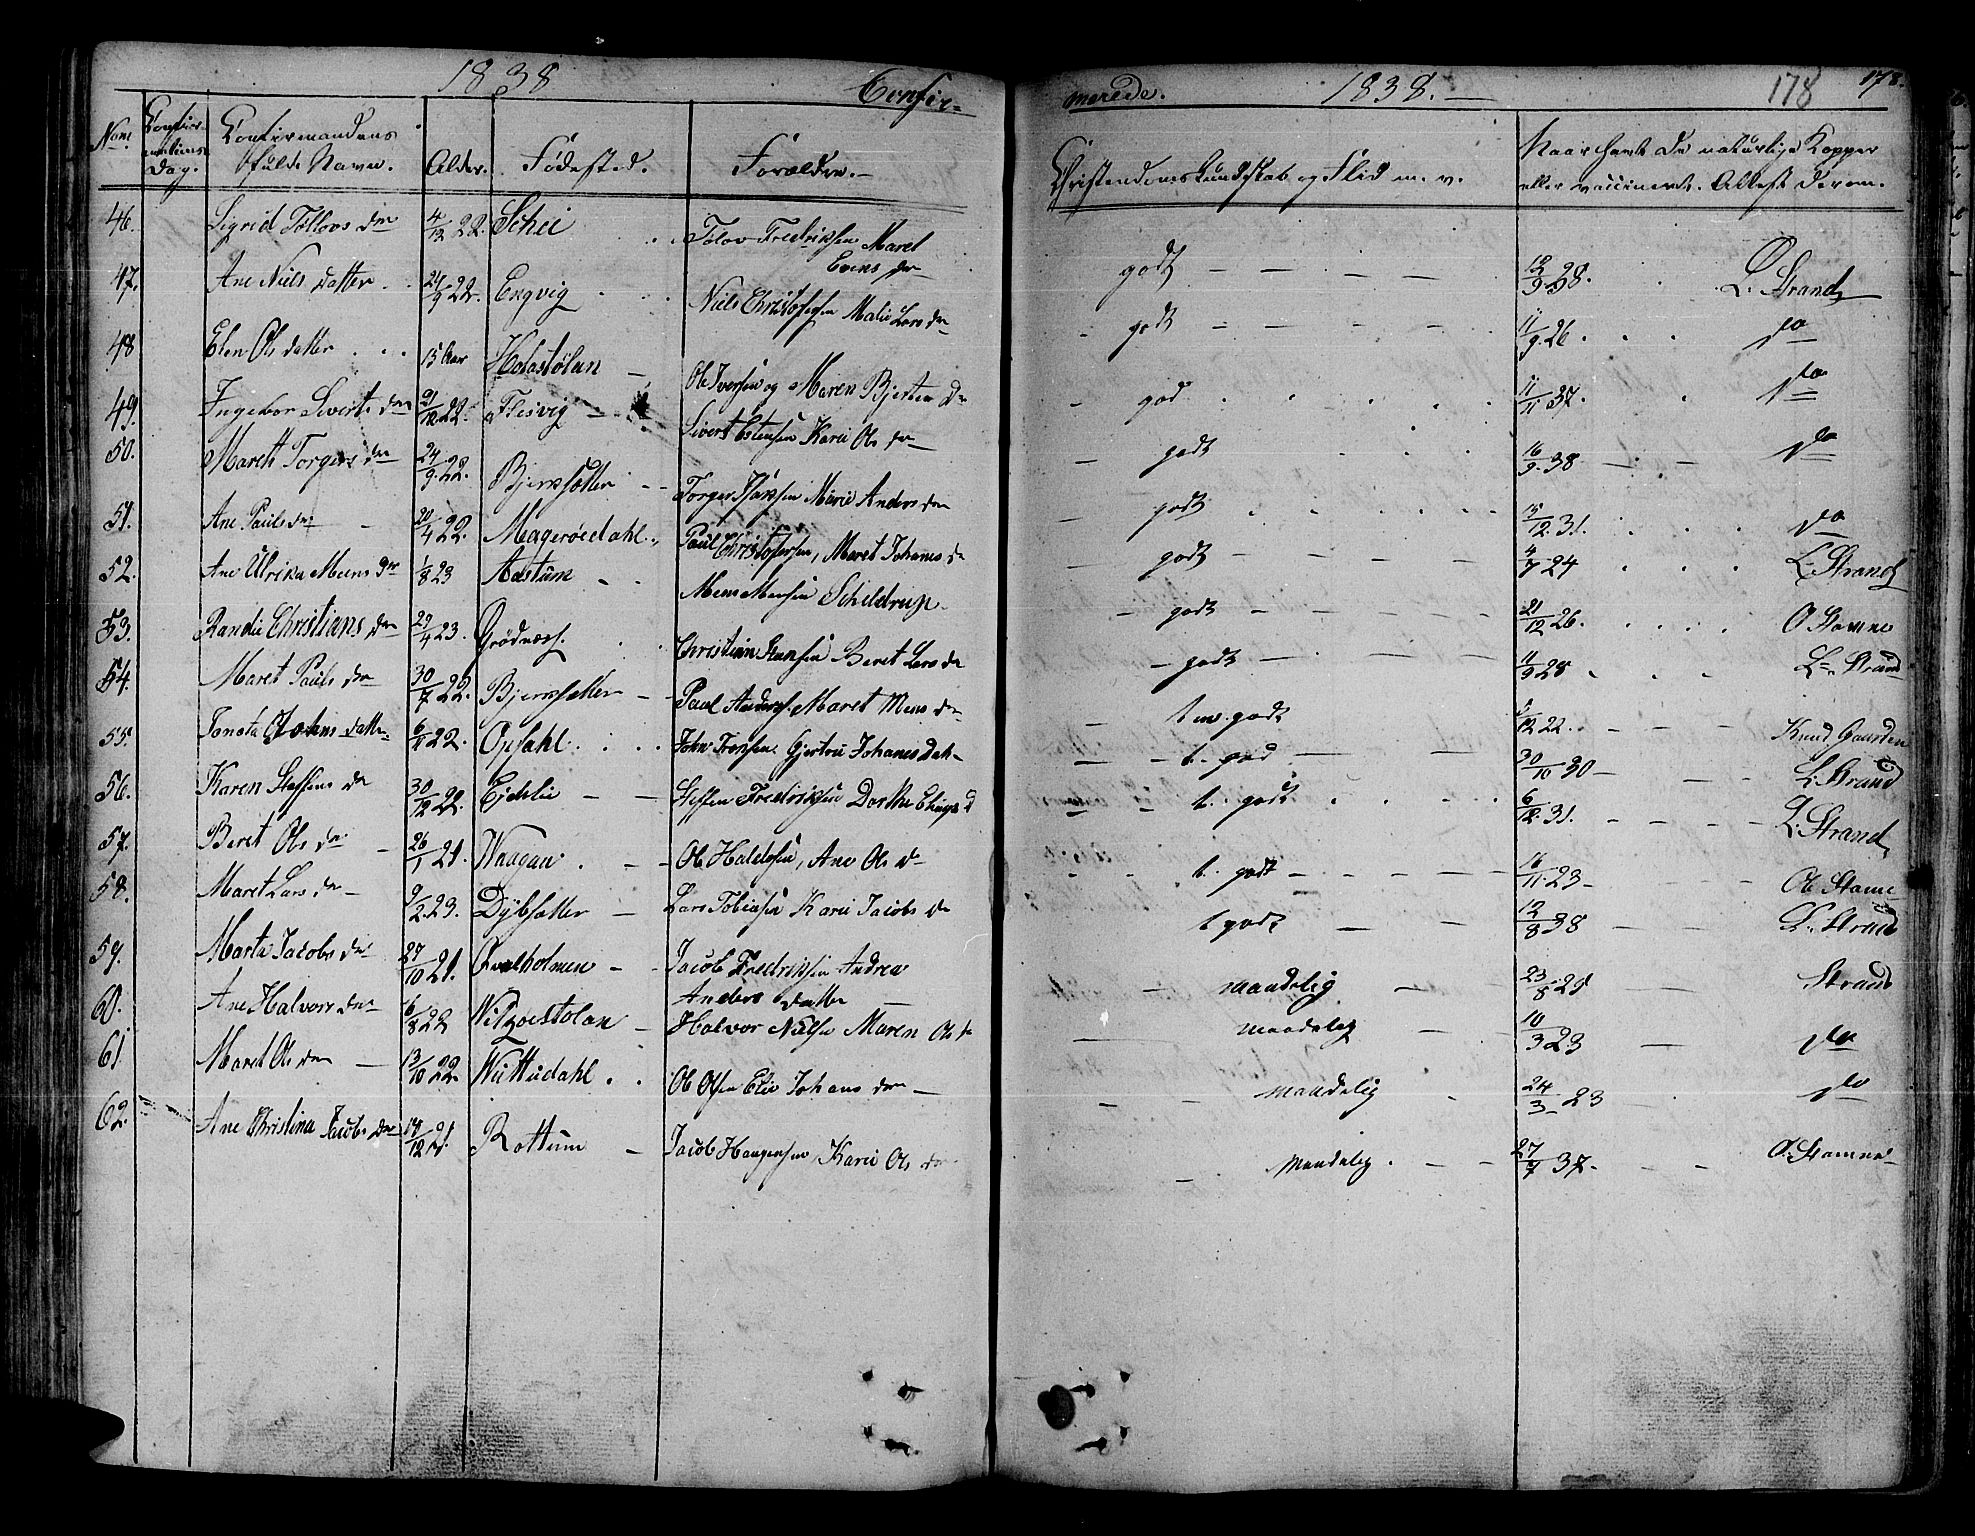 1838 Confir-
merede. 1838. 178 178.
Num. Confirmations Dag. Confirmandens fulde Navn. Alder. Fødested. Forældre. Christendomskundskab og Flid m. v. Naar havt de naturlige Kopper eller vaccineret. Attest derom.
46. Sigrid Tollovs dr 4/12 22. Schei Tolov Fredriksen Maret Evens dr godt 12/9 38. L. Strand
47. Ane Niels datter 24/9 22. Engvig Niels Christophersen Malie Lars dr godt 11/9 26 do
48 Elen Ols datter 15 Aar Holastølan Ole Iversen og Maren Bjerten dr god 11/11 37. do
49. Ingebor Siverts dr 21/12 22. Flesvig Sivert Estensen Karii Ols dr godt 16/9 38 do
50. Marett Torgers dr 24/9 22. Bjerksætter Torger Isaksen Marie Anders dr godt 15/12 31. do
51. Ane Pauls dr 20/4 22. Magerøedahl Paul Christophersen, Maret Johanes dr godt 4/7 24 L. Strand
52. Ane Ulrika Mens dr 1/8 23 Aastum Mens Mensen Schildrup godt 21/12 26. O Stamne
53. Randie Christians dr 29/4 23. Grødnæss. Christian Hansen Beret Lars dr godt 11/9 28 L. Strand
54. Maret Pauls dr 30/7 22. Bjerksætter Paul Anders. Maret Mens dr tm. godt 5/12 22. Knud Gaarden
55. Johns datter 6/11 22. Opdahl John Gjertru Johanes Dat. t. god 30/10 30 L. Strand
56. Karen Steffens dr 30/12 22. Ejdelie Steffen Fredriksen Dorthe t. godt 6/12 31. L. Strand
57. Beret Ols dr 26/1 21. Waagan Ole Haldosen, Ane Ols dr t. godt 16/11 23 Ole Stamne
58. Maret Lars dr 9/2 23. Dybsætter Lars Tobiasen Karii Jacobs dr t godt 12/8 38 L. Strand
59. Marta Jacobs dr 27/10 21. holmen Jacob Fredriksen Andrea Anders datter maadelig 23/8 25 Strand
60. Ane Halvors dr 16/8 22 Halvor Nielsen Maren Ols d maadeleg 10/3 23 do
61 Maret Ols dr 13/10 22. Wuttudahl Ole Olsen Elie Johans dr maadelig 24/3 23 do
62. Ane Christina Jacobs dr 14/12 21. Rottum Jacob Haagensen, Karii Ols dr Maadelig 27/7 37. O. Stamne